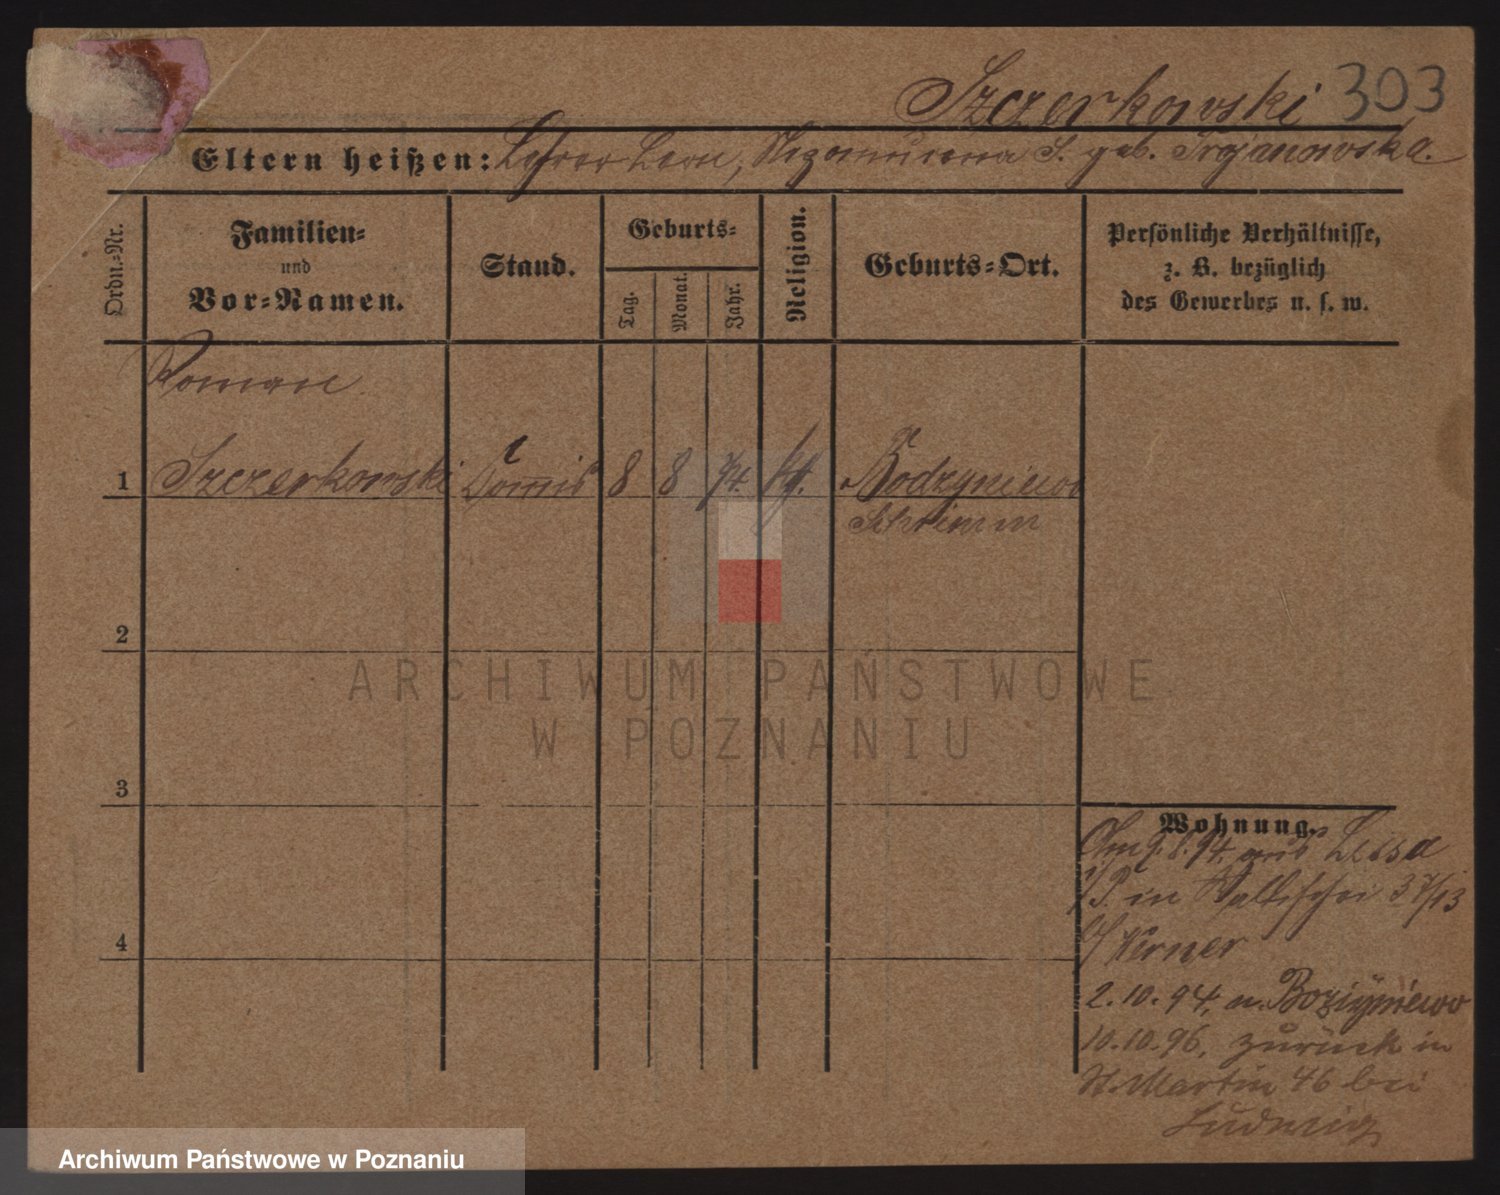 Szczerkowski 303
Eltern heißen: Lehrer Leon, Nepomucena S. geb. Trojanowska.
Ordn.-Nr.
Familien-
und
Vor-Namen.
Stand.
Geburts-
Tag.
Monat.
Jahr.
Religion.
Geburts-Ort.
Persönliche Verhältnisse,
z. B. bezüglich
des Gewerbes u. s. w.
Roman
1 Szczerkowski Comis 8 8 74. kt. Bodzyniewo
Schrimm
2
3
4
Wohnung.
Am 9.8.94. aus Lissa
i/P. in Wallischei 37/13
b/ Werner
2.10.94, n. Bozyniewo
10.10.96. zurück in
St. Martin 46 bei
Ludwig
ARCHIWUM PAŃSTWOWE
W POZNANIU
Archiwum Państwowe w Poznaniu